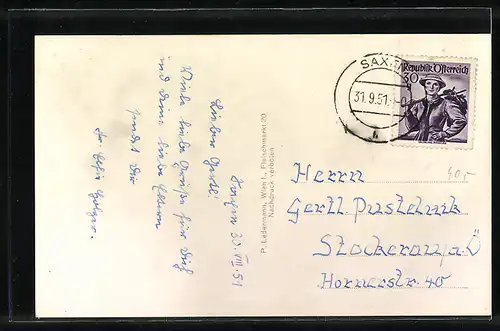 30.VIII.51
Lieber Gertl!
Viele liebe Grüße für Dich
und deine liebe Eltern
sendet Dir
P. Ledermann, Wien I., Fleischmarkt 20
Nachdruck verboten
SAX
31.9.51
Republik Österreich
30
Herrn
Gertl Pustelnik
Stockerau, N.Ö
Hornerstr 40
40r